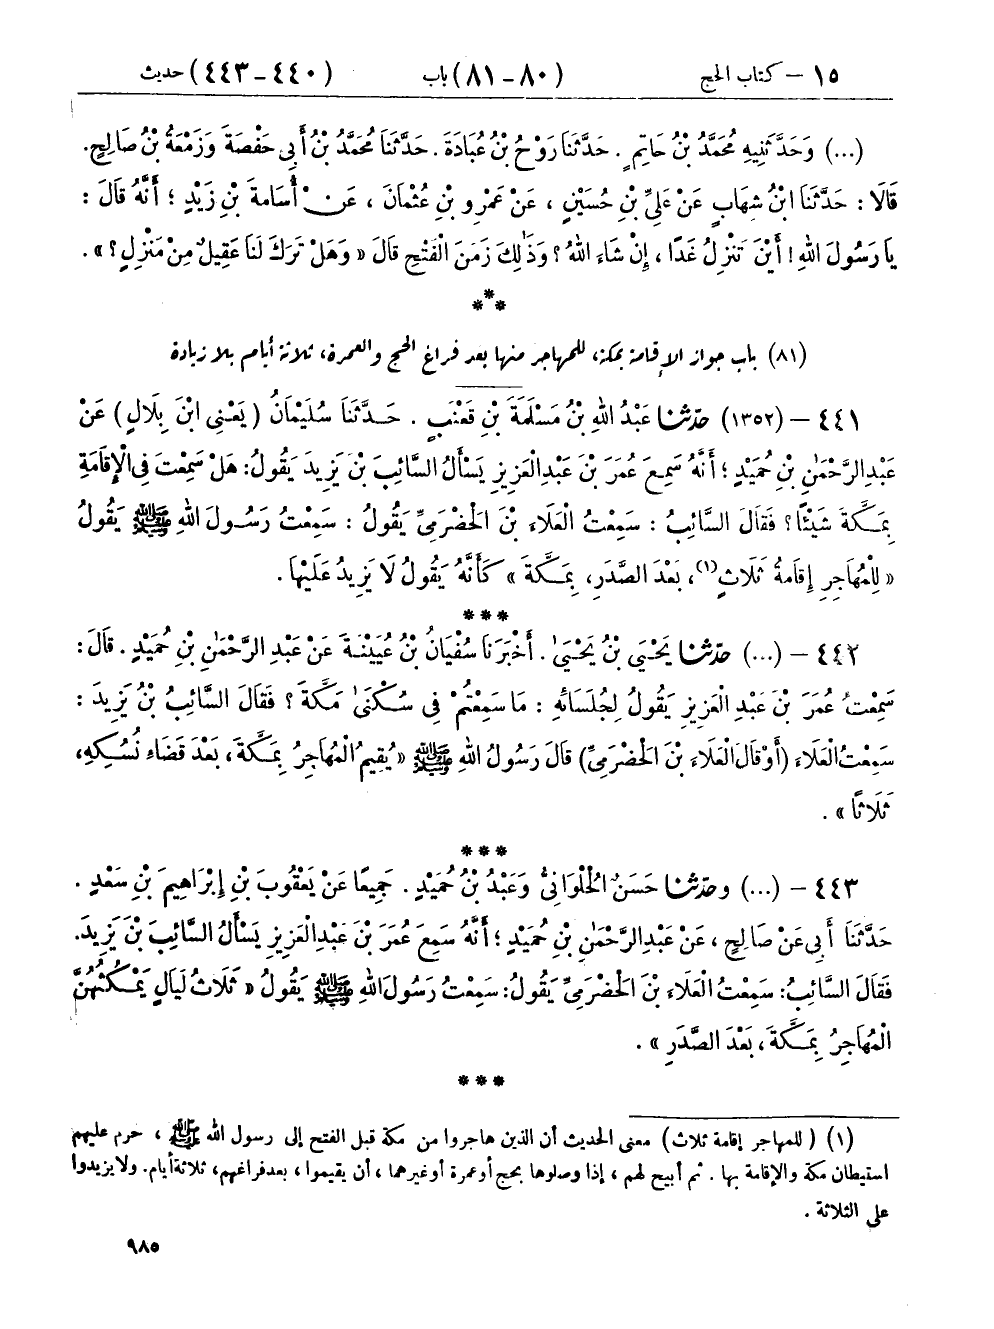 ١٥ – كتاب الحج (٨٠ – ٨١) باب (٤٤٠ – ٤٤٣) حديث
(...) وَحَدَّثَنِيهِ مُحَمَّدُ بْنُ حَاتِمٍ . حَدَّثَنَا رَوْحُ بْنُ عُبَادَةَ . حَدَّثَنَا مُحَمَّدُ بْنُ أَبِي حَفْصَةَ وَزَمْعَةُ بْنُ صَالِحٍ.
قَالَا : حَدَّثَنَا ابْنُ شِهَابٍ عَنْ عَلِيِّ بْنِ حُسَيْنٍ ، عَنْ عَمْرِو بْنِ عُثْمَانَ ، عَنْ أُسَامَةَ بْنِ زَيْدٍ ؛ أَنَّهُ قَالَ :
يَا رَسُولَ اللهِ ! أَيْنَ تَنْزِلُ غَدًا ، إِنْ شَاءَ اللهُ ؟ وَذٰلِكَ زَمَنَ الْفَتْحِ قَالَ « وَهَلْ تَرَكَ لَنَا عَقِيلٌ مِنْ مَنْزِلٍ ؟ » .
***
(٨١) باب جواز الإقامة بمكة، للمهاجر منها بعد فراغ الحج والعمرة، ثلاثة أيام بلا زيادة
٤٤١ – (١٣٥٢) حدّثنا عَبْدُ اللهِ بْنُ مَسْلَمَةَ بْنِ قَعْنَبٍ . حَدَّثَنَا سُلَيْمَانُ ( يَعْنِي ابْنَ بِلَالٍ ) عَنْ
عَبْدِ الرَّحْمٰنِ بْنِ حُمَيْدٍ ؛ أَنَّهُ سَمِعَ عُمَرَ بْنَ عَبْدِ الْعَزِيزِ يَسْأَلُ السَّائِبَ بْنَ يَزِيدَ يَقُولُ: هَلْ سَمِعْتَ فِي الْإِقَامَةِ
بِمَكَّةَ شَيْئًا ؟ فَقَالَ السَّائِبُ : سَمِعْتُ الْعَلَاءَ بْنَ الْحَضْرَمِيِّ يَقُولُ : سَمِعْتُ رَسُولَ اللهِ ﷺ يَقُولُ
« لِلْمُهَاجِرِ إِقَامَةُ ثَلَاثٍ(١)، بَعْدَ الصَّدَرِ، بِمَكَّةَ » كَأَنَّهُ يَقُولُ لَا يَزِيدُ عَلَيْهَا .
***
٤٤٢ – (...) حدّثنا يَحْيَى بْنُ يَحْيَىٰ . أَخْبَرَنَا سُفْيَانُ بْنُ عُيَيْنَةَ عَنْ عَبْدِ الرَّحْمٰنِ بْنِ حُمَيْدٍ . قَالَ :
سَمِعْتُ عُمَرَ بْنَ عَبْدِ الْعَزِيزِ يَقُولُ لِجُلَسَائِهِ : مَا سَمِعْتُمْ فِي سُكْنَىٰ مَكَّةَ ؟ فَقَالَ السَّائِبُ بْنُ يَزِيدَ :
سَمِعْتُ الْعَلَاءَ (أَوْ قَالَ الْعَلَاءَ بْنَ الْحَضْرَمِيِّ) قَالَ رَسُولُ اللهِ ﷺ « يُقِيمُ الْمُهَاجِرُ بِمَكَّةَ، بَعْدَ قَضَاءِ نُسُكِهِ،
ثَلَاثًا » .
***
٤٤٣ – (...) وحدّثنا حَسَنٌ الْحُلْوَانِيُّ وَعَبْدُ بْنُ حُمَيْدٍ . جَمِيعًا عَنْ يَعْقُوبَ بْنِ إِبْرَاهِيمَ بْنِ سَعْدٍ .
حَدَّثَنَا أَبِي عَنْ صَالِحٍ ، عَنْ عَبْدِ الرَّحْمٰنِ بْنِ حُمَيْدٍ ؛ أَنَّهُ سَمِعَ عُمَرَ بْنَ عَبْدِ الْعَزِيزِ يَسْأَلُ السَّائِبَ بْنَ يَزِيدَ.
فَقَالَ السَّائِبُ: سَمِعْتُ الْعَلَاءَ بْنَ الْحَضْرَمِيِّ يَقُولُ: سَمِعْتُ رَسُولَ اللهِ ﷺ يَقُولُ « ثَلَاثُ لَيَالٍ يَمْكُثُهُنَّ
الْمُهَاجِرُ بِمَكَّةَ ، بَعْدَ الصَّدَرِ » .
***
(١) ( للمهاجر إقامة ثلاث ) معنى الحديث أن الذين هاجروا من مكة قبل الفتح إلى رسول الله ﷺ ، حرم عليهم
استيطان مكة والإقامة بها . ثم أبيح لهم ، إذا وصلوها بحج أو عمرة أو غيرهما ، أن يقيموا ، بعد فراغهم، ثلاثة أيام. ولا يزيدوا
على الثلاثة .
٩٨٥